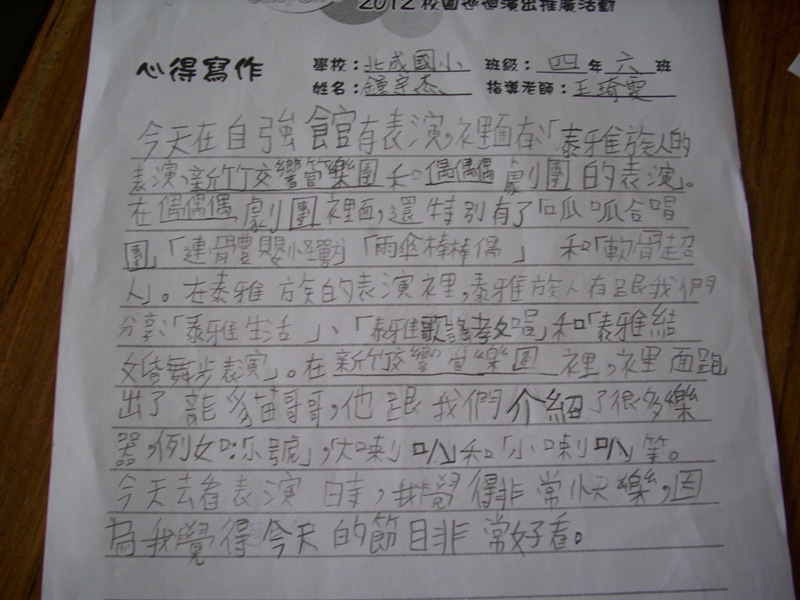 2012校園巡迴演出推廣活動
心得寫作 學校：北成國小 班級：四年六班
姓名：鐘宇杰 指導老師：王琦雯
今天在自強館有表演，裡面有：「泰雅族人的
表演、新竹交響管樂團和偶偶偶劇團的表演。
在偶偶偶劇團裡面，還特別有了「呱呱合唱
團」「連體嬰小怪獸」「雨傘棒棒偶」和「軟骨超
人」。在泰雅族的表演裡，泰雅族人有跟我們
分享：「泰雅生活」、「泰雅歌謠教唱」和「泰雅結
婚舞步表演」。在新竹交響管樂團裡，裡面跑
出了龍貓哥哥，他跟我們介紹了很多樂
器，例如：「小號」，「大喇叭」和「小喇叭」等。
今天去看表演時，我覺得非常快樂，因
為我覺得今天的節目非常好看。